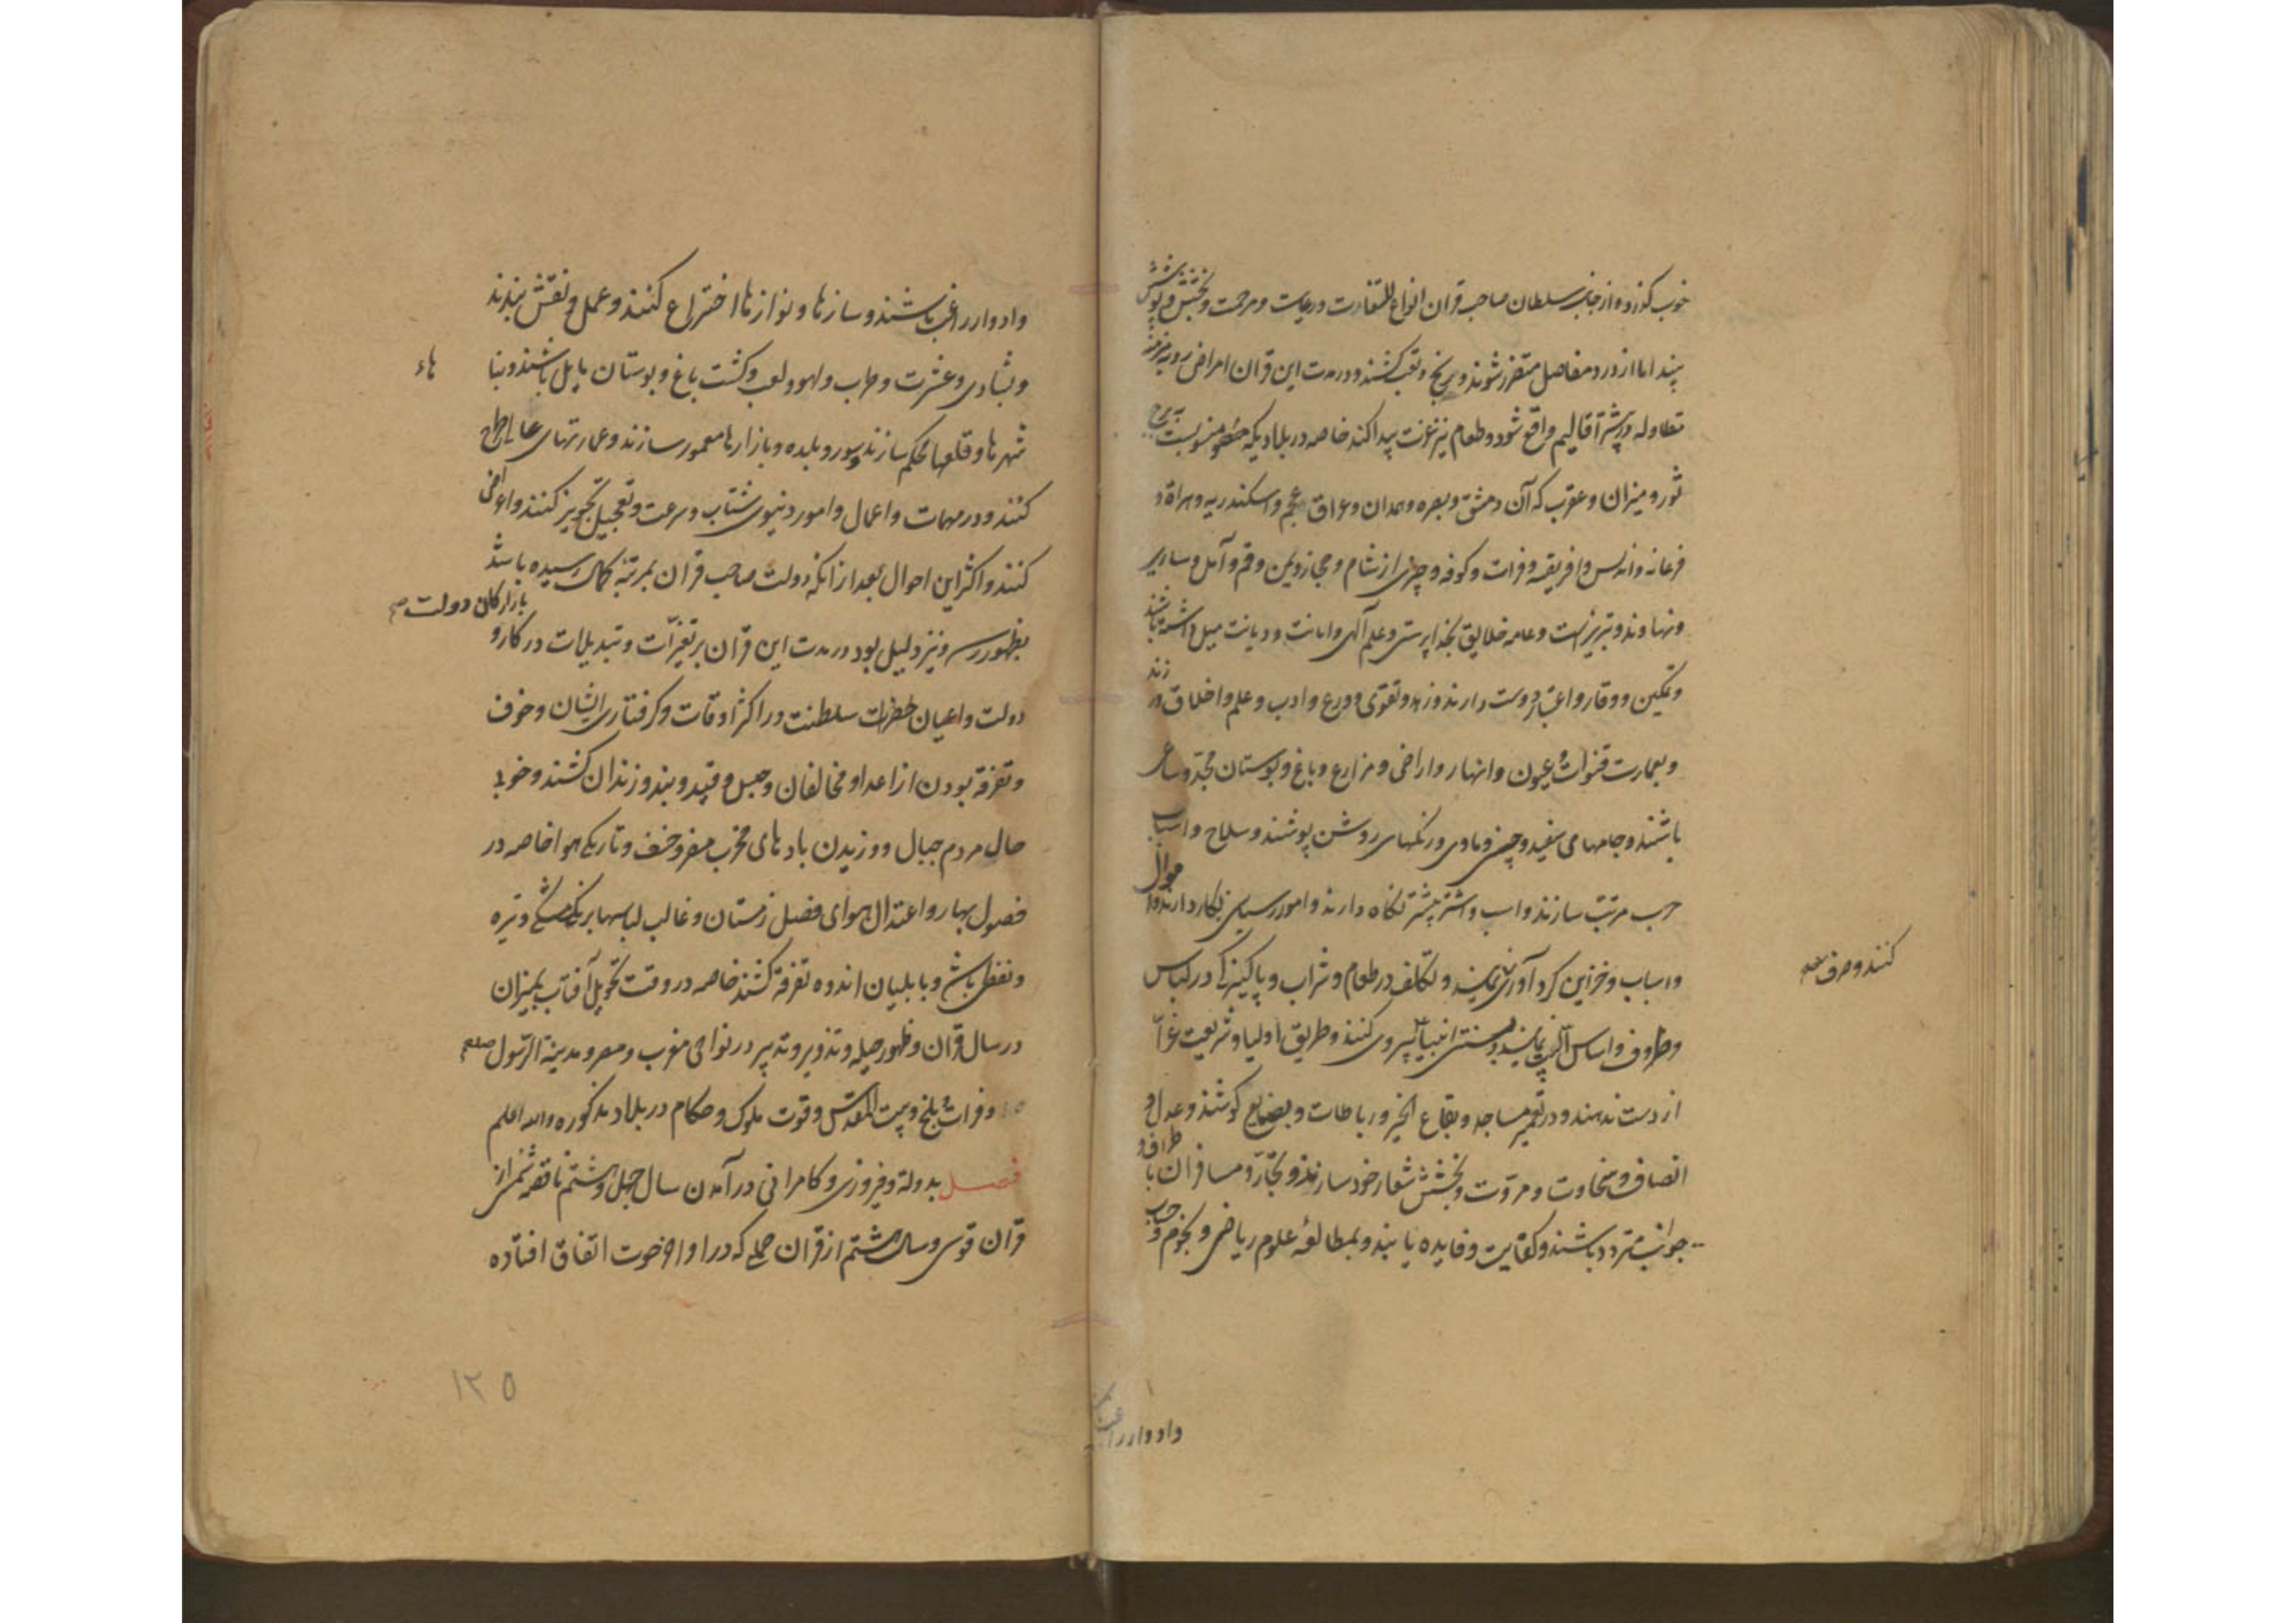 خوب گذرد و از جانب سلطان صاحب قران انواع التفات و رعایت و مرحمت و بخشش و پوشش
بینند اما از درد مفاصل متضرر شوند و رنج و تعب کشند و در مدت این قران امراض ردیه مزمنه
متطاوله در بیشتر اقالیم واقع شود و طعام نیز عزت پیدا کند خاصه در بلادیکه منسوبست ببرج
ثور و میزان و عقرب که آن دمشق و بصره و همدان و عراق عجم و اسکندریه و هراة و
فرغانه و اندلس و افریقیه و فرات و کوفه و چیزی از شام و حجاز و یمن و قم و آمل و ساریر
و نهاوند و تبریز است و عامه خلایق بخدا پرستی و علم آلهی و امانت و دیانت میل داشته باشند
و تمکین و وقار و اعتبار دوست دارند و زهد و تقوی و ورع و ادب و علم و اخلاق ورزند
و بعمارت قنوات و عیون و انهار و اراضی و مزارع و باغ و بوستان مجد و ساعی
باشند و جامهای سفید و رنگهای روشن پوشند و سلاح و اسباب
حرب مرتب سازند و اسب و اشتر بیشتر نگاه دارند و امور سیاسی بکار دارند و اموال
و اسباب و خزاین گرد آوری نمایند و تکلف در طعام و شراب و پاکیزگی در لباس
کنند و صرف
و ظروف و اساس البیت نمایند و بسنت انبیا پیروی کنند و طریق اولیا و شریعت غرّا
از دست ندهند و در تعمیر مساجد و بقاع الخیر و رباطات و کوشند و عدل و
انصاف و سخاوت و مروّت و بخشش شعار خود سازند و تجّار و مسافران باطراف و
جوانب متردد باشند و کفایت و فایده یابند و بمطالعهٔ علوم ریاضی و نجوم و حساب
وادوار راغب
وادوار راغب باشند و سازها و نوازها اختراع کنند و عمل و نقش بندند
و بشادی و عشرت و طرب و لهو و لعب و کشت باغ و بوستان مایل باشند و بنا
هاء
شهرها و قلعها محکم سازند و سور و بلده و بازارها معمور سازند و عمارتهای عالی طرح
کنند و در مهمات و اعمال و امور دنیوی شتاب و سرعت و تعجیل تجویز کنند و اعراض
کنند و اکثر این احوال بعد از آنکه دولت صاحب قران بمرتبهٔ کمال رسیده باشد
با ارکان دولت صح
بظهور رسد و نیز دلیل بود در مدت این قران بر تغیّرات و تبدیلات در کار و
دولت و اعیان حضرات سلطنت در اکثر اوقات و گرفتاری ایشان و خوف
و تفرقه بودن از اعدا و مخالفان و حبس و قید و بند و زندان کشند و خوبی
حال مردم جبال و وزیدن بادهای مخرب مضر و خسف و تاریکی هوا خاصه در
فصول بهار و اعتدال هوای فصل زمستان و غالب لباسها برنگ مشکی و تیره
و بنفش باشد و بابلیان اندوه تفرقه کشند خاصه در وقت تحویل آفتاب بمیزان
در سال قران و ظهور حیله و تزویر و تدبیر در نواحی مغرب و مصر و مدینة الرّسول صلعم
و فرات و بلخ و بیت المقدّس و قوت ملوک و حکام در بلاد مذکوره والله اعلم
فصل بدولة و فیروزی و کامرانی در آمدن سال چهل و هشتم ناقصهٔ شمسی از
قران قوسی و سال هشتم از قران حملی که در اواخر حوت اتفاق افتاده
١٢٥